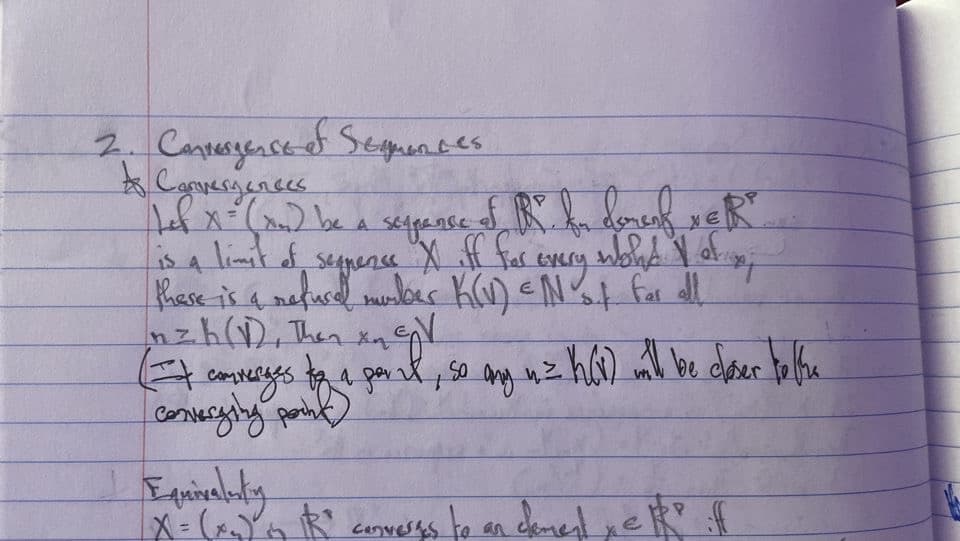 2. Convergence of Sequences
* Convergences
Let X = (xn) be a sequence of ℝᵖ. An element x ∈ ℝᵖ
is a limit of sequence X iff for every nbhd V of x,
there is a natural number K(V) ∈ ℕ s.t. for all
n ≥ K(V), Then xn ∈ V
(It converges to a point, so any n ≥ K(V) will be closer to the
converging point)
Equivalently
X = (xn) in ℝᵖ converges to an element x ∈ ℝᵖ iff